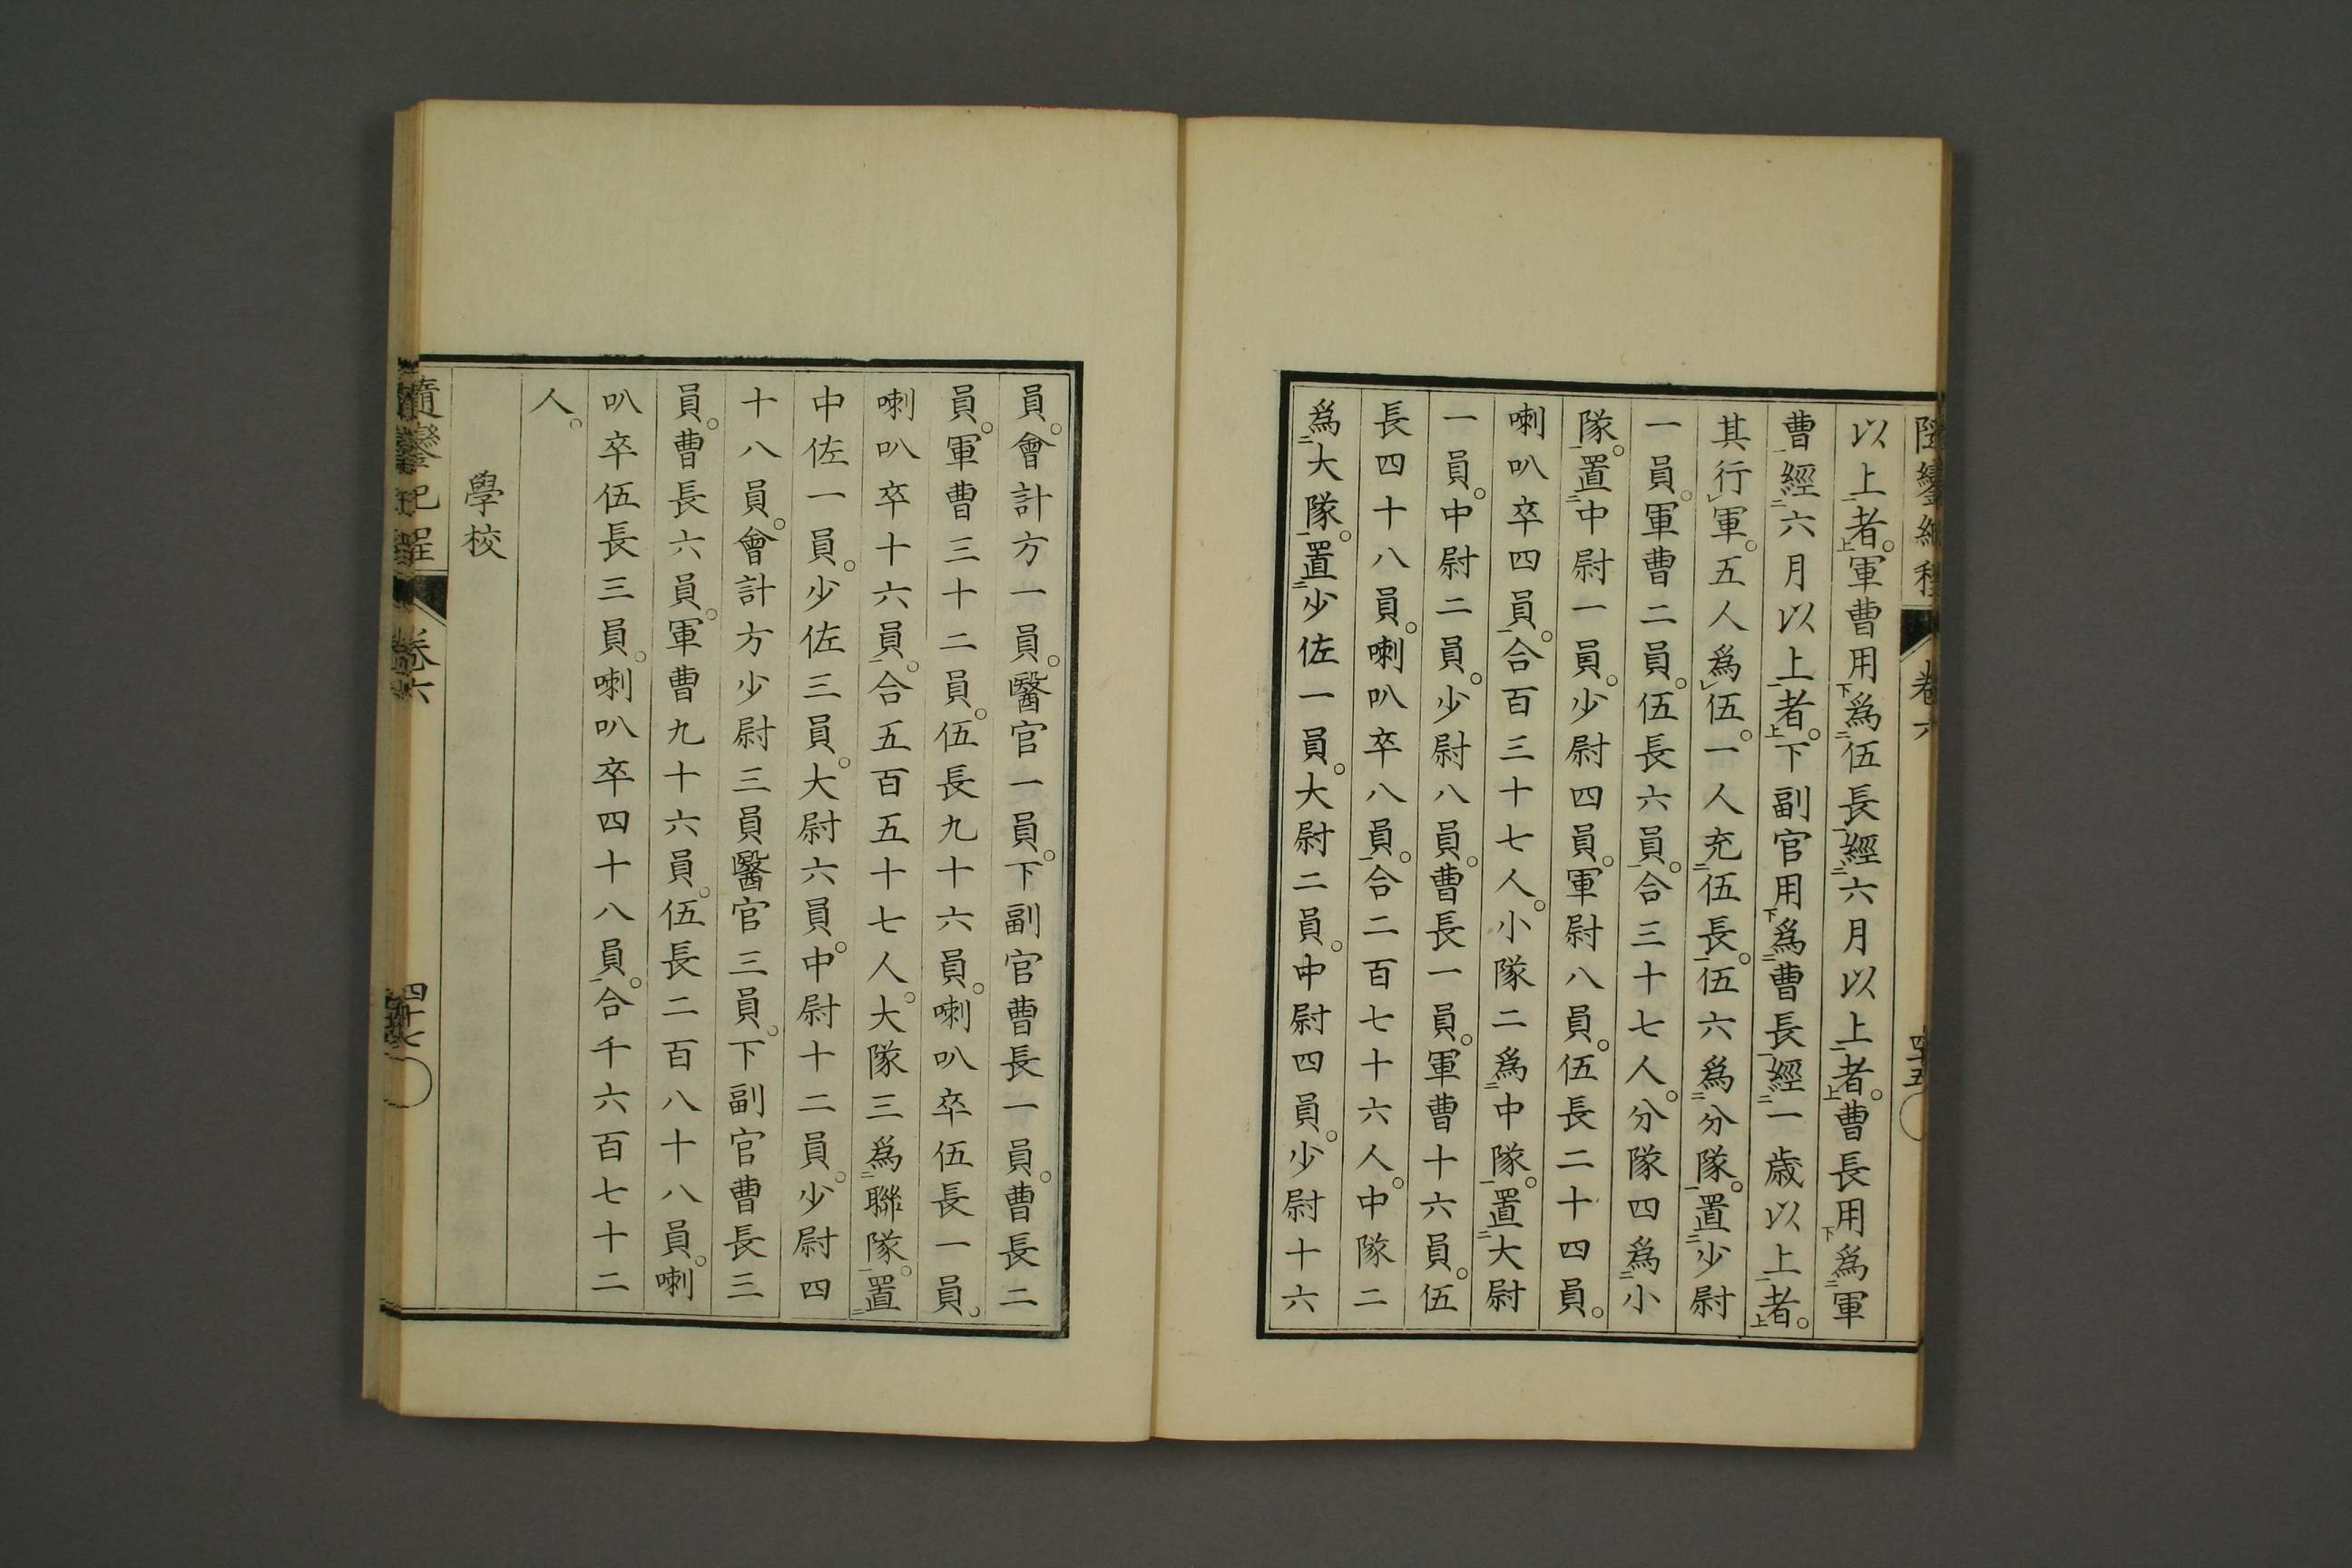 以上者。軍曹用爲伍長經六月以上者。曹長用爲軍
曹經六月以上者。下副官用爲曹長經一歳以上者。
其行軍。五人爲伍。一人充伍長。伍六爲分隊。置少尉
一員。軍曹二員。伍長六員。合三十七人。分隊四爲小
隊。置中尉一員。少尉四員。軍尉八員。伍長二十四員。
喇叭卒四員。合百三十七人。小隊二爲中隊。置大尉
一員。中尉二員。少尉八員。曹長一員。軍曹十六員。伍
長四十八員。喇叭卒八員。合二百七十六人。中隊二
爲大隊。置少佐一員。大尉二員。中尉四員。少尉十六
員。會計方一員。醫官一員。下副官曹長一員。曹長二
員。軍曹三十二員。伍長九十六員。喇叭卒伍長一員。
喇叭卒十六員。合五百五十七人。大隊三爲聯隊。置
中佐一員。少佐三員。大尉六員。中尉十二員。少尉四
十八員。會計方少尉三員醫官三員。下副官曹長三
員。曹長六員。軍曹九十六員。伍長二百八十八員。喇
叭卒伍長三員。喇叭卒四十八員。合千六百七十二
人。
學校
隨鑾紀程
卷六
四十七